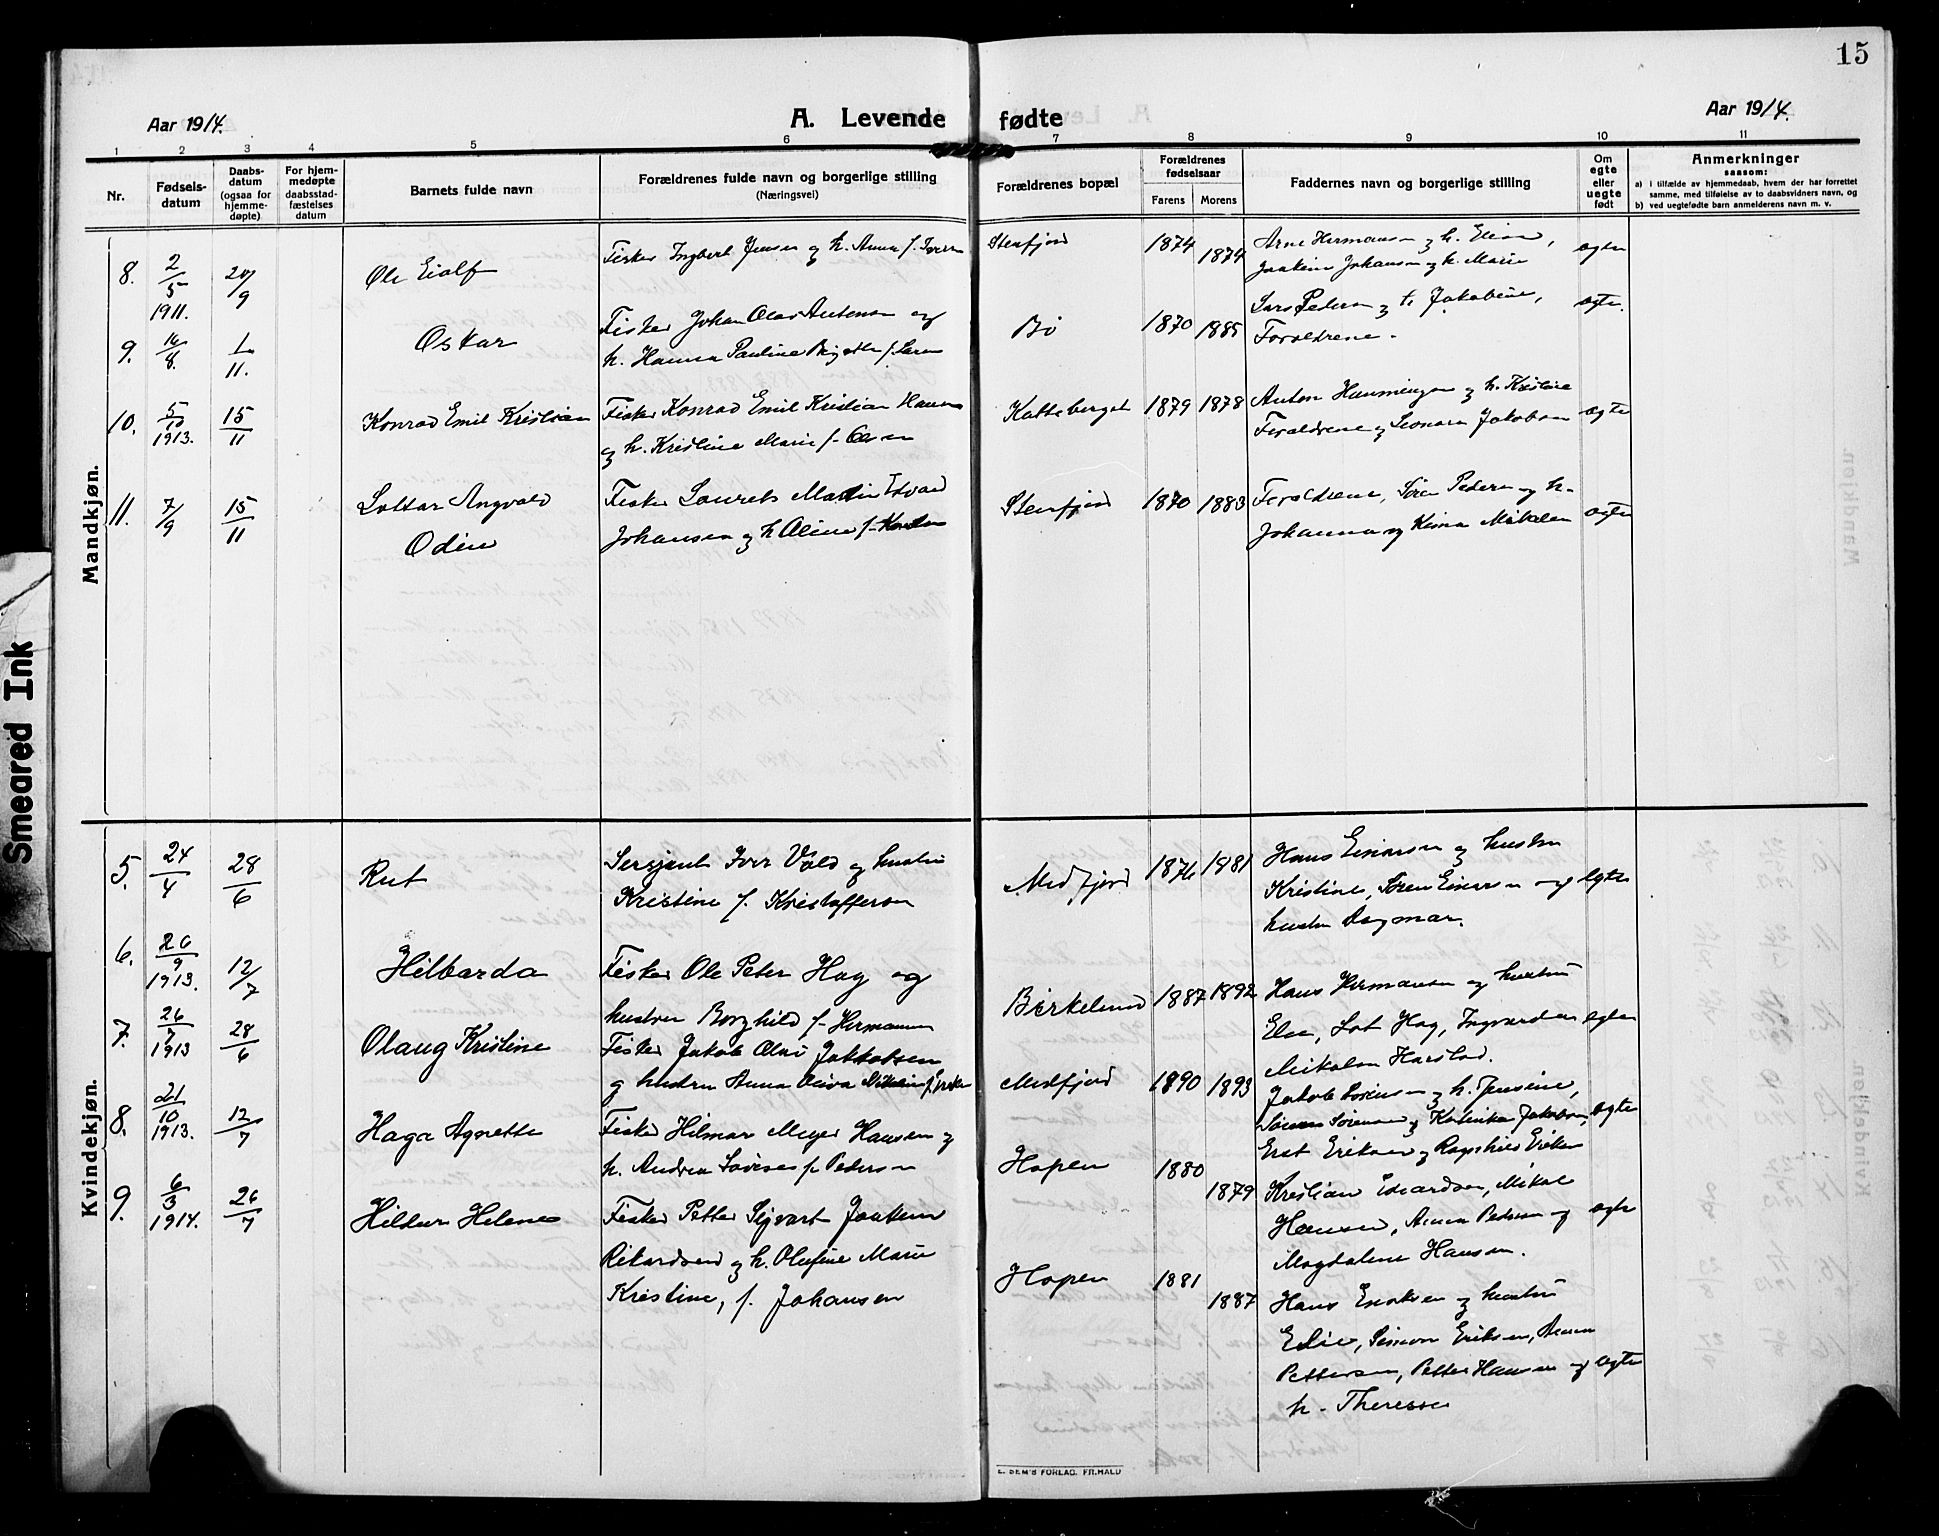 15
Aar 1914.
A. Levende fødte
Aar 1914.
1 2 3 4 5 6 7 8 9 10 11
Nr.
Fødsels-
datum
Daabs-
datum
(ogsaa for
hjemme-
døpte)
For hjem-
medøpte
daabsstad-
fæstelses
datum
Barnets fulde navn
Forældrenes fulde navn og borgerlige stilling
(Næringsvei)
Forældrenes bopæl
Forældrenes
fødselsaar
Farens Morens
Faddernes navn og borgerlige stilling
Om
egte
eller
uegte
født
Anmerkninger
saasom:
a) i tilfælde av hjemmedaab, hvem der har forrettet
samme, med tilføielse av to daabsvidners navn, og
b) ved uegtefødte barn anmelderens navn m. v.
Mandkjøn.
8. 2/5 1911. 20/9 Ole Eiolf
Fisker Ingbert Jensen og h. Anna f. Iversen
Stenfjord 1874 1874
Arne Hermansen og h. Elise,
Joakim Johansen og h. Marie
egte
9. 16/8. 1/11. Oskar
Fisker Johan Olav Antonsen og
h. Hanna Pauline Birgitte f. Larsen
Bø 1870 1885
Lars Pedersen og h. Jakobine,
Foreldrene.
egte.
10. 5/10 1913. 15/11 Konrad Emil Kristian
Fisker Konrad Emil Kristian Hansen
og h. Kristine Marie f. Olsen
Katteberget 1879 1878
Anton Hanningsen og h. Kristine
Foreldrene og Leonard Jakobsen
egte
11. 7/9 15/11 Lottar Angvald
Odin
Fisker Laurits Martin Edvard
Johansen og h. Aline f.
Stenfjord 1870 1883
Foreldrene, Søren Pedersen og h.
Johanna og Mikalsen
egte
Kvindekjøn.
5. 24/4 28/6 Rut
Sersjant Iver Vold og hustru
Kristine f. Kristoffersen
Medfjord 1876 1881
Hans Einarsen og hustru
Kristine, Søren Einarsen og
hustru Dagmar.
egte
6. 20/9 1913. 12/7 Hilbarda
Fisker Ole Peter Hag og
hustru Borghild f. Hermansen
Birkelund 1887 1892
Hans Hermansen og hustru
Else, Lot Hag, Ingvarda
Mikalsen Harstad.
egte
7. 26/7 1913 28/6 Olaug Kristine
Fisker Jakob Olai Jakobsen
og hustru Anna Oliva f.
Medfjord 1890 1893
Jakob Sørensen og h. Jensine,
Sørensen og Katinka Jakobsen,
Erst Eriksen og Ragnhild Eriksen
egte
8. 21/10 1913. 12/7 Haga Agnette
Fisker Hilmar Meyer Hansen og
h. Andrea Lovise f. Pedersen
Hopen 1880 1879
Kristian Edvardsen, Mikal
Hansen, Anna Pedersen og
Magdalene Hansen.
egte
9. 6/3 1914. 26/7 Hildur Helene
Fisker Petter Sigvart Joakim
Rikardsen og h. Olufine Marie
Kristine, f. Johansen
Hopen 1881 1887
Hans Enoksen og hustru
Elie, Simon Eriksen, Anna
Pettersen, Petter Hansen og
h. Therese
egte
E. SEM'S FORLAG. FR.HALD
Smeared Ink